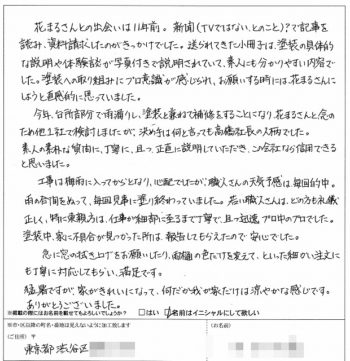 花まるさんとの出会いは11年前。新聞(TVではない、とのこと)?で記事を
読み、資料請求したのがきっかけでした。送られてきた小冊子は、塗装の具体的
な説明や体験談が写真付きで説明されていて、素人にも分かりやすい内容で
した。塗装への取り組みにプロ意識が感じられ、お願いする時には、花まるさんに
しようと直感的に思っていました。
今年、台所部分で雨漏りし、塗装と兼ねて補修をすることになり、花まるさんと念の
ため他1社で検討しましたが、決め手は何と言っても高橋社長の人柄でした。
素人の素朴な質問に、丁寧に、且つ、正直に説明していただき、この会社なら信用できる
と思いました。
工事は梅雨に入ってからとなり、心配でしたが、職人さんの天気予感は、毎回的中。
雨の合間をぬって、毎回見事に塗り終わっていました。若い職人さんは、どの方も礼儀
正しく、特に
は、仕事が細部に至るまで丁寧で、且つ迅速。プロ中のプロでした。
塗装中、家に不具合が見つかった所は、報告してもらえたので安心でした。
急に窓の拭き上げをお願いしたり、
の色だけを変えて、といった細かい注文に
も丁寧に対応してもらい、満足です。
猛暑ですが、家がきれいになって、何だか我が家だけは涼やかな感じです。
ありがとうございました。
※掲載の際にはお名前を載せてもよろしいでしょうか? □はい ☑名前はイニシャルにして欲しい
※市・区以降の町名・番地は見えないように加工致します
(ご住所) (お名前)
東京都渋谷区